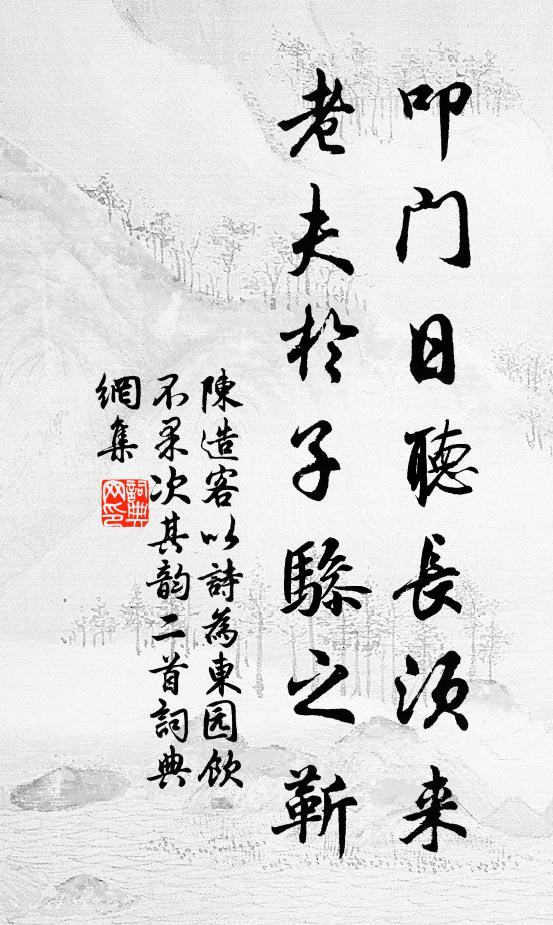 叩门日聽長须来
老夫於子驂之靳
陳造客以詩為東园飲
不果次其韵二首詞典
網集
詞典网印